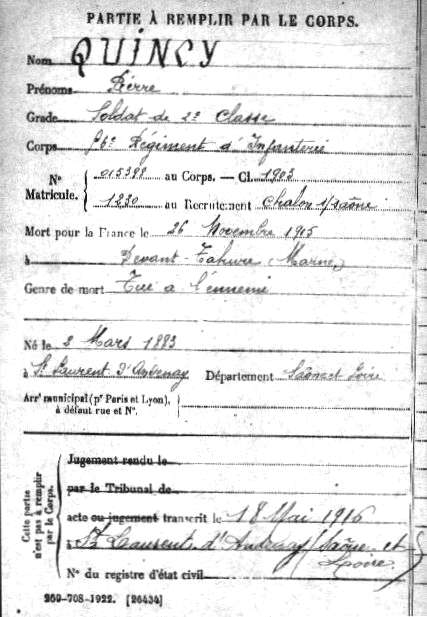 PARTIE À REMPLIR PAR LE CORPS.
Nom QUINCY
Prénoms Pierre
Grade Soldat de 2e Classe
Corps Régiment d'Infanterie
N° Matricule. 015398 au Corps. — Cl. 1903
1230 au Recrutement Chalon s/saône
Mort pour la France le 26 Novembre 1915
à Devant-Tahure (Marne)
Genre de mort Tué à l'ennemi
Né le 2 Mars 1883
à St Laurent d'Andenay Département Saône et Loire
Arrt municipal (pr Paris et Lyon), à défaut rue et N°.
Cette partie n'est pas à remplir par le Corps.
Jugement rendu le
par le Tribunal de
acte ou jugement transcrit le 18 Mai 1916
à St Laurent d'Andenay (Saône et
Loire)
N° du registre d'état civil
269-708-1922. [26434]